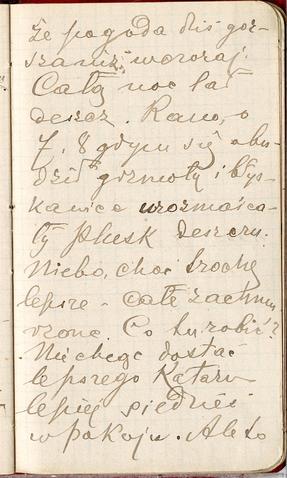 że pogoda dziś gor-
sza niż wczoraj.
Całą noc lał
deszcz. Rano, o
7, 8 gdym się obu-
dził grzmoty i błys-
kawice urozmaica-
ły plusk deszczu.
Niebo, choć trochę
lepsze - całe zachmu
rzone Co tu robić?
Nie chcąc dostać
lepszego Kataru
lepiej siedzieć
w pokoju. Ale to